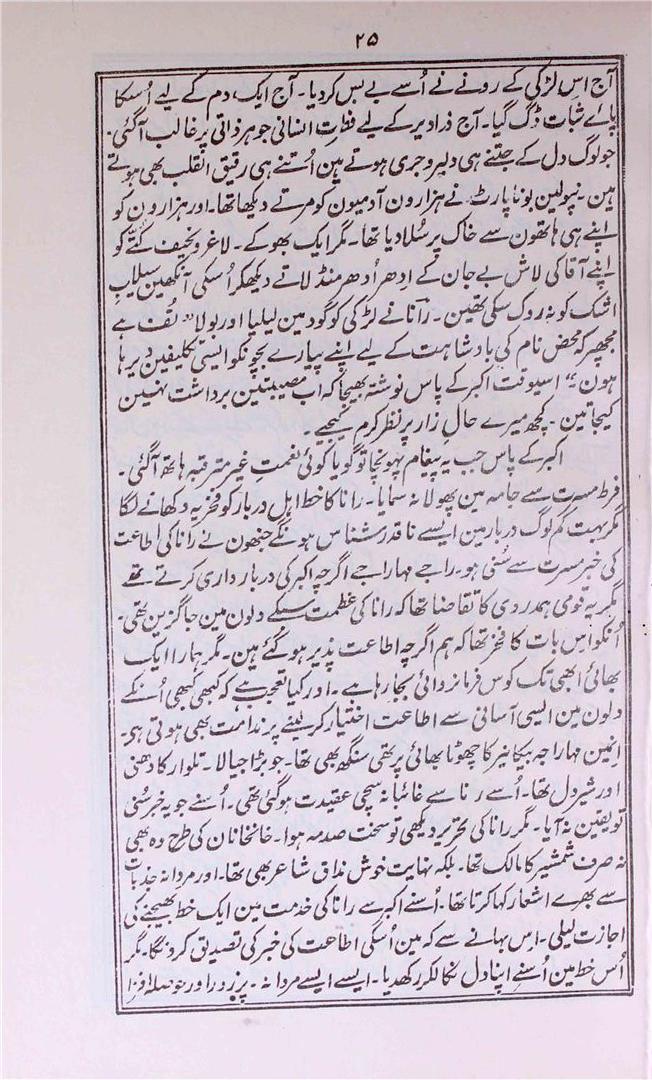 ۲۵
آج اس لڑکی کے رونے نے اُسے بے بس کر دیا۔ آج ایک دم کے لیے اُسکا
پائے ثبات ڈگ گیا۔ آج ذرا دیر کے لیے فطرت انسانی جوہر ذاتی پر غالب آگئی۔
جو لوگ دل کے جتنے ہی دلیر و جری ہوتے ہین اُتنے ہی رقیق القلب بھی ہوتے
ہین۔ نپولین بونا پارٹ نے ہزارون آدمیون کو مرتے دیکھا تھا۔ اور ہزارون کو
اپنے ہی ہاتھون سے خاک پر سُلا دیا تھا۔ مگر ایک بھوکے۔ لاغر و نحیف کُتے کو
اپنے آقا کی لاش بے جان کے اِدھر اُدھر منڈلاتے دیکھکر اُسکی آنکھین سیلابِ
اشک کو نہ روک سکی تھین۔ رانا نے لڑکی کو گود مین لیلیا اور بولا "تُف ہے
مجھپر کہ محض نام کی بادشاہت کے لیے اپنے پیارے بچونکو ایسی تکلیفین دیرہا
ہون"۔ اسیوقت اکبر کے پاس نوشتہ بھیجا کہ اب مصیبتین برداشت نہین
کیجاتین۔ کچھ میرے حالِ زار پر نظر کرم کیجیے۔
اکبر کے پاس جب یہ پیغام پہونچا تو گویا کوئی نعمتِ غیر مترقبہ ہاتھ آگئی۔
فرط مسرت سے جامہ مین پھولا نہ سمایا۔ رانا کا خط اہل دربار کو فخریہ دکھانے لگا
مگر بہت کم لوگ دربار مین ایسے ناقدر شناس ہونگے جنھون نے رانا کی اطاعت
کی خبر مسرت سے سُنی ہو۔ راجے مہاراجے اگرچہ اکبر کی دربار داری کرتے تھے
مگر یہ قومی ہمدردی کا تقاضا تھا کہ رانا کی عظمت سبکے دلون مین جاگزین تھی۔
اُنکو اس بات کا فخر تھا کہ ہم اگرچہ اطاعت پذیر ہو گئے ہین۔ مگر ہمارا ایک
بھائی ابھی تک کوس فرمانروائی بجا رہا ہے۔ اور کیا تعجب ہے کہ کبھی کبھی اُنکے
دلون مین ایسی آسانی سے اطاعت اختیار کر لینے پر ندامت بھی ہوتی ہو۔
انھین مہاراجہ بیکانیر کا چھوٹا بھائی پرتھی سنگھ بھی تھا۔ جو بڑا جیالا۔ تلوار کا دھنی
اور شیر دل تھا۔ اُسے رانا سے غائبانہ سچی عقیدت ہو گئی تھی۔ اُسنے جو یہ خبر سُنی
تو یقین نہ آیا۔ مگر رانا کی تحریر دیکھی تو سخت صدمہ ہوا۔ خانخانان کی طرح وہ بھی
نہ صرف شمشیر کا مالک تھا۔ بلکہ نہایت خوش مذاق شاعر بھی تھا۔ اور مردانہ جذبات
سے بھرے اشعار کہا کرتا تھا۔ اُسنے اکبر سے رانا کی خدمت مین ایک خط بھیجنے کی
اجازت لیلی۔ اس بہانے سے کہ مین اُسکی اطاعت کی خبر کی تصدیق کرونگا۔ مگر
اُس خط مین اُسنے اپنا دل نکالکر رکھدیا۔ ایسے ایسے مردانہ۔ پر زور اور حوصلہ افزا